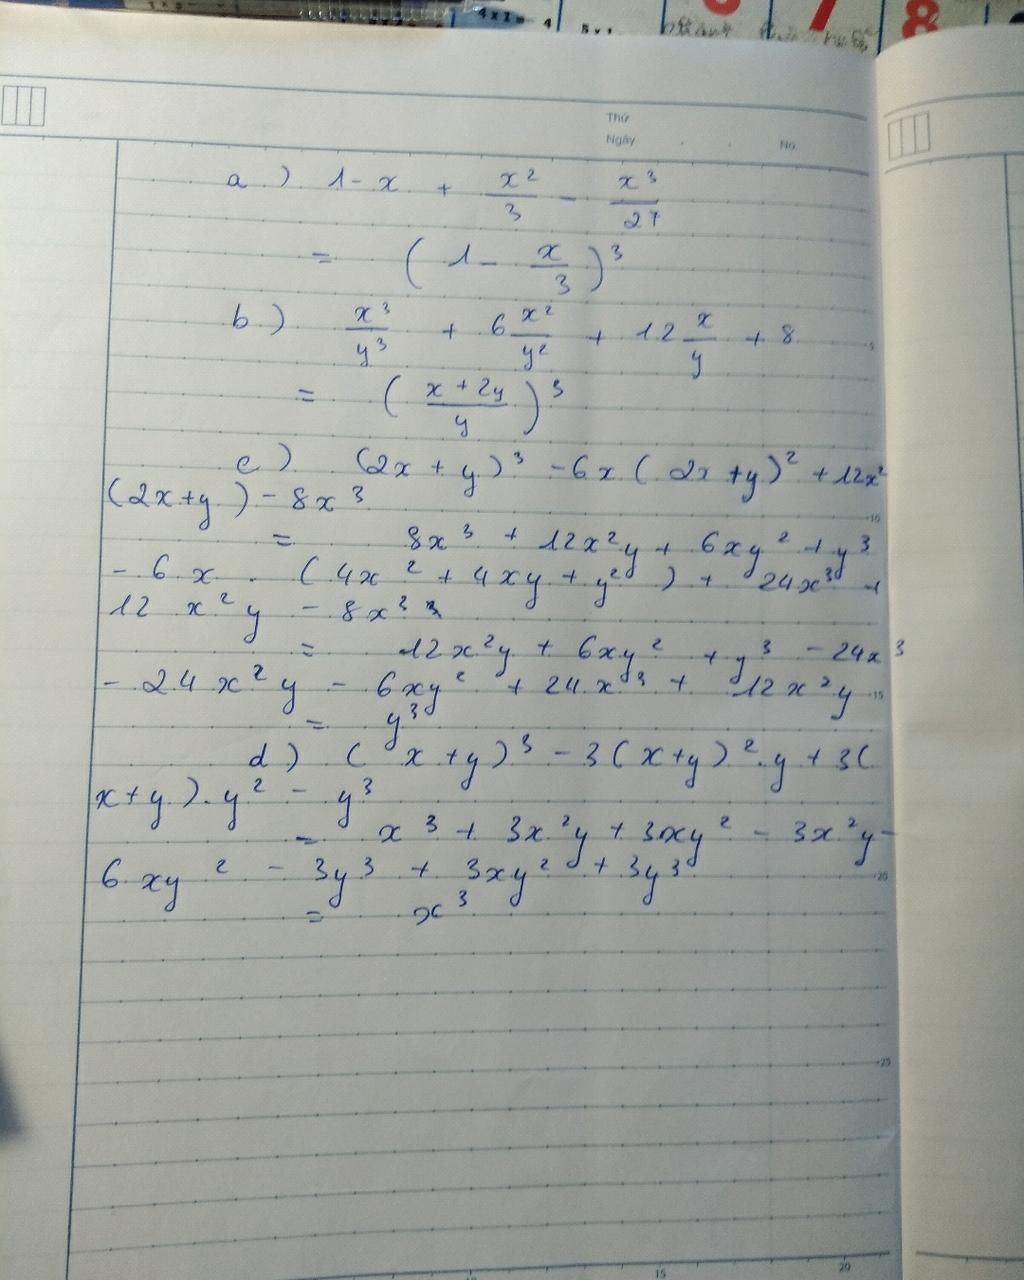 4 x 2 = 4
5 x 1
7 8
Thứ
Ngày . . No.
a) 1 - x + x²/3 - x³/27
= (1 - x/3)³
b) x³/y³ + 6 x²/y² + 12 x/y + 8
5
= ((x + 2y)/y)³
c) (2x + y)³ - 6x (2x + y)² + 12x²
(2x + y) - 8x³
10
= 8x³ + 12x²y + 6xy² + y³
- 6x . (4x² + 4xy + y²) + 24x³ +
12 x²y - 8x³
= 12x²y + 6xy² + y³ - 24x³
- 24x²y - 6xy² + 24x³ + 12x²y
15
= y³
d) (x + y)³ - 3(x + y)².y + 3(
x + y).y² - y³
= x³ + 3x²y + 3xy² - 3x²y -
6xy² - 3y³ + 3xy² + 3y³
20
= x³
25
15 20